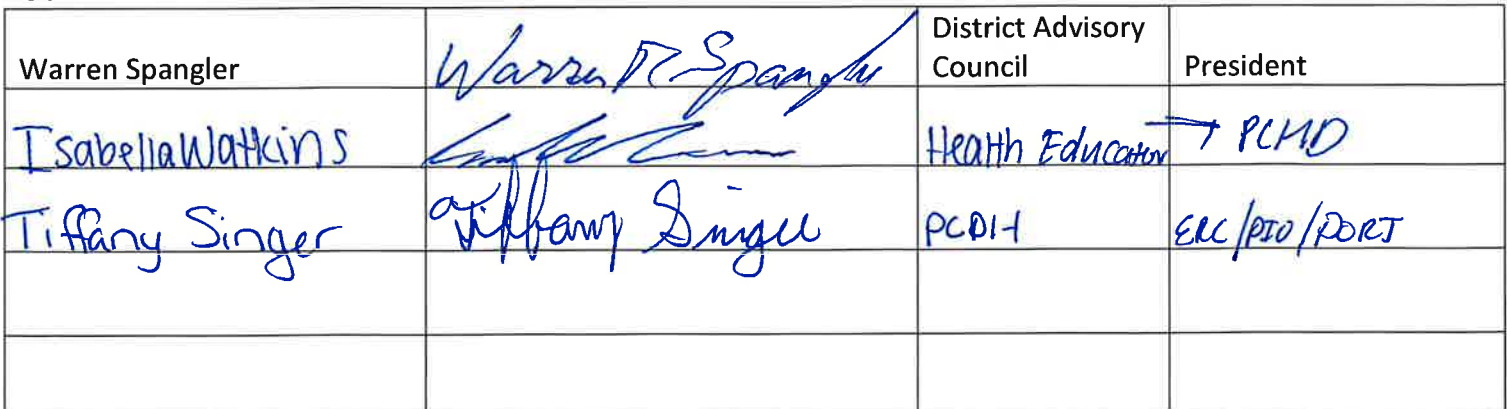 Warren Spangler Warren R Spangler District Advisory Council President
Isabella Watkins Health Educator → PCHD
Tiffany Singer Tiffany Singer PCDH ERC/PIO/PORT